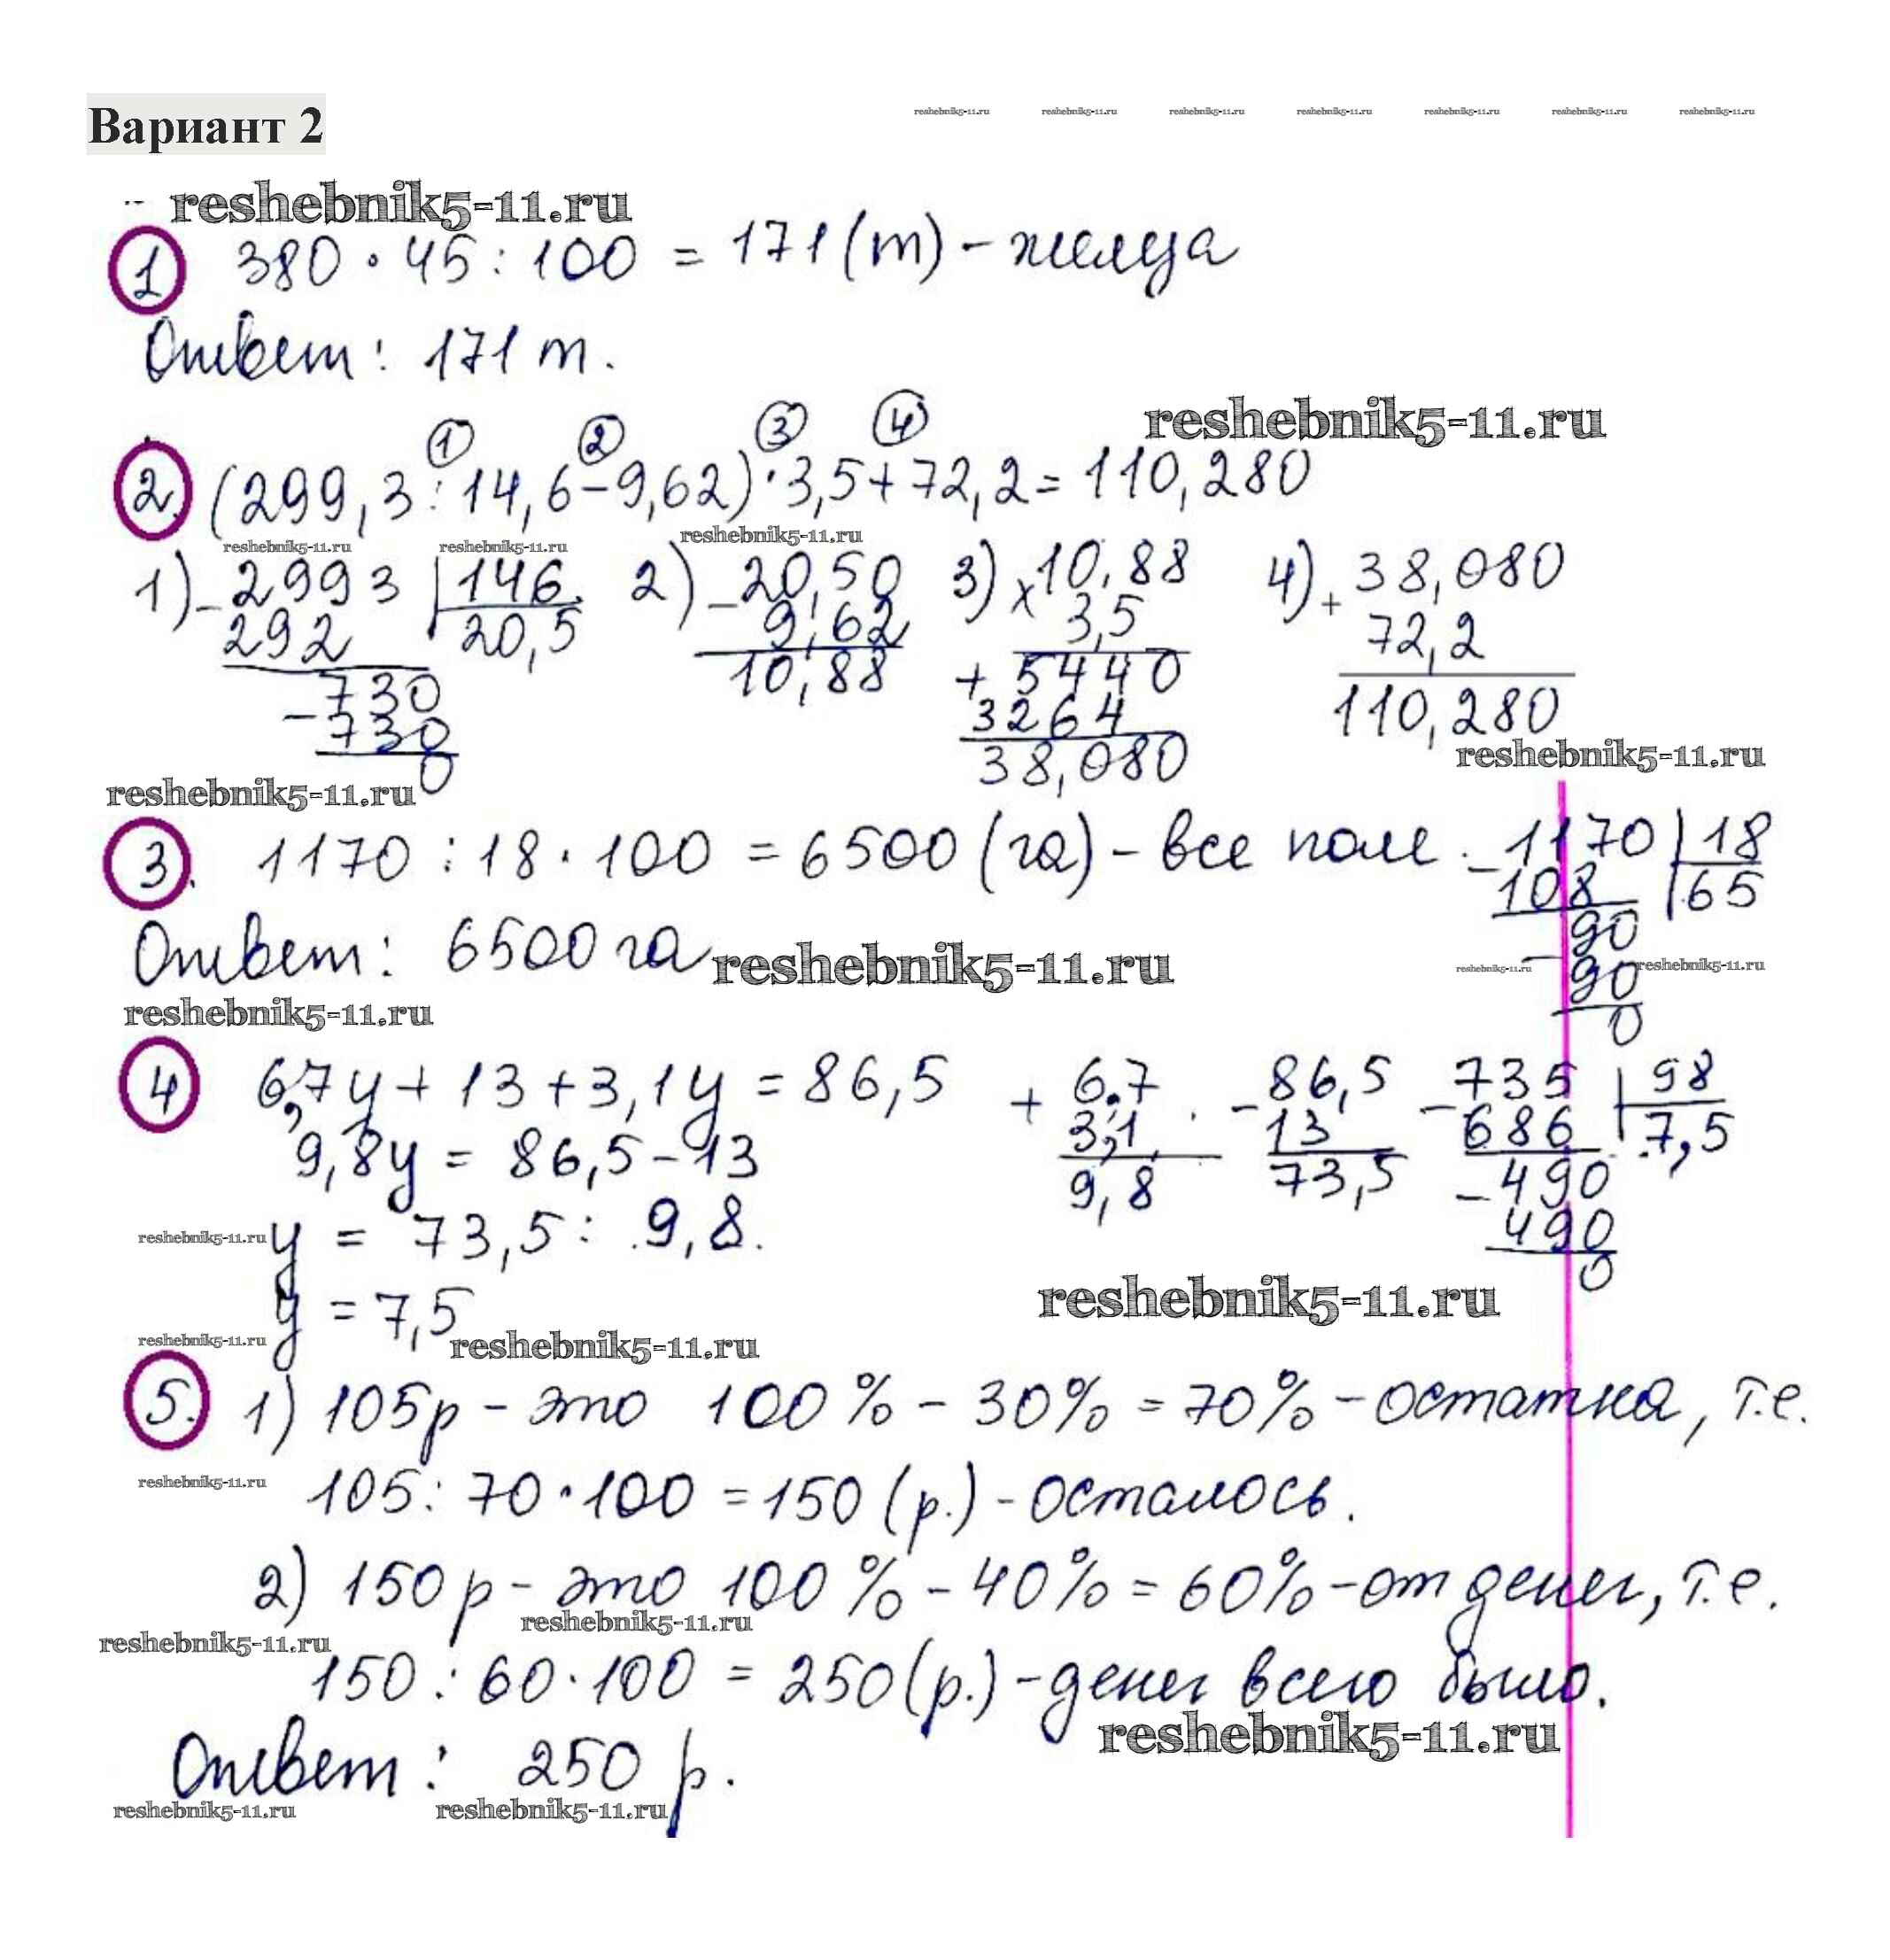 reshebnik5-11.ru reshebnik5-11.ru reshebnik5-11.ru reshebnik5-11.ru reshebnik5-11.ru reshebnik5-11.ru reshebnik5-11.ru
Вариант 2
reshebnik5-11.ru
1 380 · 45 : 100 = 171 (т) - железа
Ответ: 171 т.
reshebnik5-11.ru
1 2 3 4
2. (299,3 : 14,6 - 9,62) · 3,5 + 72,2 = 110,280
reshebnik5-11.ru reshebnik5-11.ru reshebnik5-11.ru
1) - 2993 | 146 2) - 20,50 3) x 10,88 4) + 38,080
292 20,5 9,62 3,5 72,2
- 730 10,88 + 5440 110,280
730 3264
0 38,080
reshebnik5-11.ru reshebnik5-11.ru
3. 1170 : 18 · 100 = 6500 (га) - все поле. - 1170 | 18
108 65
Ответ: 6500 га - 90
reshebnik5-11.ru reshebnik5-11.ru reshebnik5-11.ru
90
0
reshebnik5-11.ru
4 6,7y + 13 + 3,1y = 86,5 + 6,7 - 86,5 - 735 | 98
3,1 13 686 7,5
9,8y = 86,5 - 13 9,8 73,5 - 490
490
0
reshebnik5-11.ru y = 73,5 : 9,8.
reshebnik5-11.ru
y = 7,5
reshebnik5-11.ru reshebnik5-11.ru
5. 1) 105р - это 100% - 30% = 70% - остатка, т.е.
reshebnik5-11.ru 105 : 70 · 100 = 150 (р.) - осталось.
2) 150р - это 100% - 40% = 60% - от денег, т.е.
reshebnik5-11.ru reshebnik5-11.ru
150 : 60 · 100 = 250 (р.) - денег всего было.
reshebnik5-11.ru
Ответ: 250 р.
reshebnik5-11.ru reshebnik5-11.ru